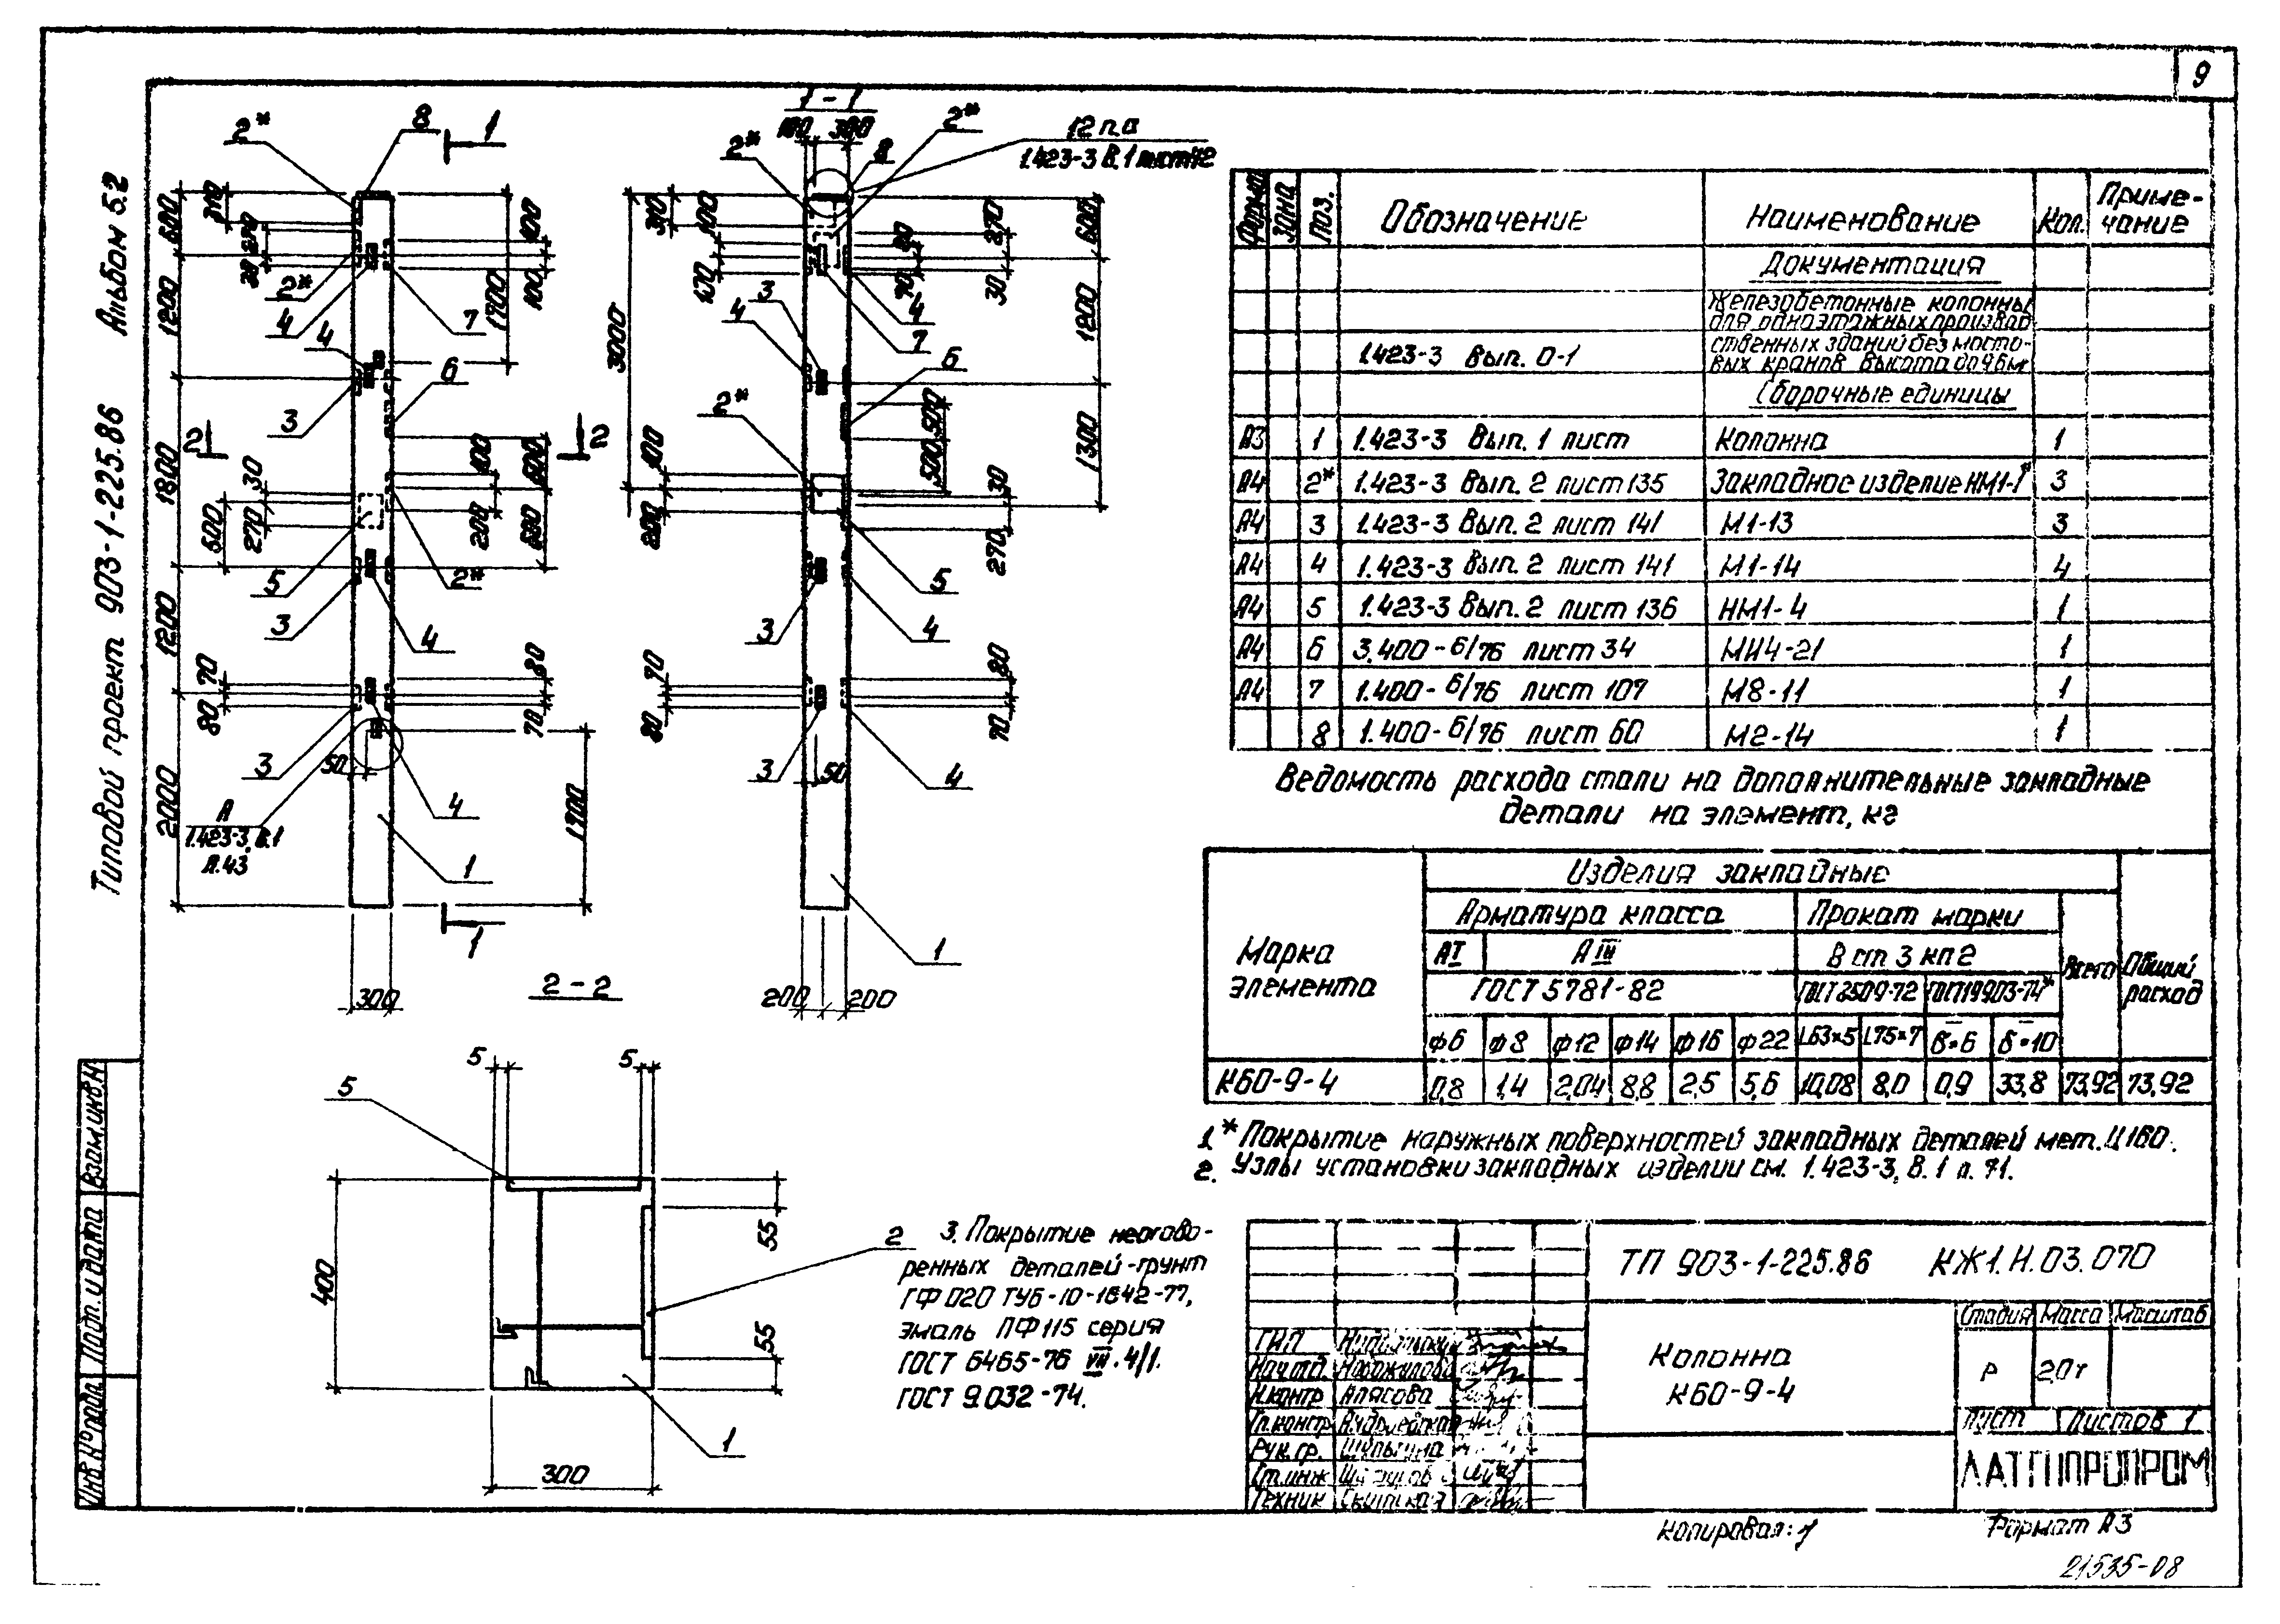 9
Типовой проект 903-1-225.86 Альбом 5.2
2* 8 1
600 310 270 30 100 100 1700
1200 2* 4 4 7
3 6
2 2
1800 30 270 600 100 200 600 600
5 2*
3 4
1200 70 80 80 70
3 50 4
2000 1700
А
1.423-3, В.1
л.43
1
1
300
1-1
100 300
2* 2* 8
12 п.а
1.423-3 В.1 лист 42
310 100 100 20 70 270 30 600
3000 3 4 4 7 1200
6
2* 500 500 1300
100 200 30 270
5
3 4
70 80 80 70
3 50 4
1
200 200
2-2
5 5
5
400 55 55
2
1
300
Формат Зона Поз. Обозначение Наименование Кол. Приме-
чание
Документация
Железобетонные колонны
для одноэтажных производ
1.423-3 Вып. 0-1 ственных зданий без мосто-
вых кранов высота до 9.6м
Сборочные единицы
А3 1 1.423-3 Вып. 1 лист Колонна 1
А4 2* 1.423-3 Вып. 2 лист 135 Закладное изделие НМ1-1* 3
А4 3 1.423-3 Вып. 2 лист 141 М1-13 3
А4 4 1.423-3 Вып. 2 лист 141 М1-14 4
А4 5 1.423-3 Вып. 2 лист 136 НМ1-4 1
А4 6 3.400-6/76 лист 34 МИ4-21 1
А4 7 1.400-6/76 лист 107 М8-11 1
8 1.400-6/76 лист 60 М2-14 1
Ведомость расхода стали на дополнительные закладные
детали на элемент, кг
Марка элемента
Изделия закладные
Арматура класса Прокат марки
АI АIII В ст 3 кп 2 Всего Общий расход
ГОСТ 5781-82 ГОСТ 8509-72 ГОСТ 19903-74*
ф6 ф8 ф12 ф14 ф16 ф22 L63×5 L75×7 δ=6 δ=10
К60-9-4 0,8 1,4 2,04 8,8 2,5 5,6 10,08 8,0 0,9 33,8 73,92 73,92
1* Покрытие наружных поверхностей закладных деталей мет. Ц 160.
2. Узлы установки закладных изделии см. 1.423-3, В.1 л. 71.
3. Покрытие неогово-
ренных деталей-грунт
ГФ 020 ТУ6-10-1642-77,
эмаль ПФ 115 серия
ГОСТ 6465-76 VII.4/1.
ГОСТ 9.032-74.
ТП 903-1-225.86 КЖ1.И.03.070
Колонна
К60-9-4
Стадия Масса Масштаб
Р 2,0т
Лист Листов 1
ЛАТГИПРОПРОМ
ГИП
Нач.отд.
Н.контр Алясова
Гл.контр
Рук.гр. Шульгина
Ст.инж
Техник
Взам.инв.№
Подп. и дата
Инв.№ подл.
Копировал:
Формат А3
21535-08